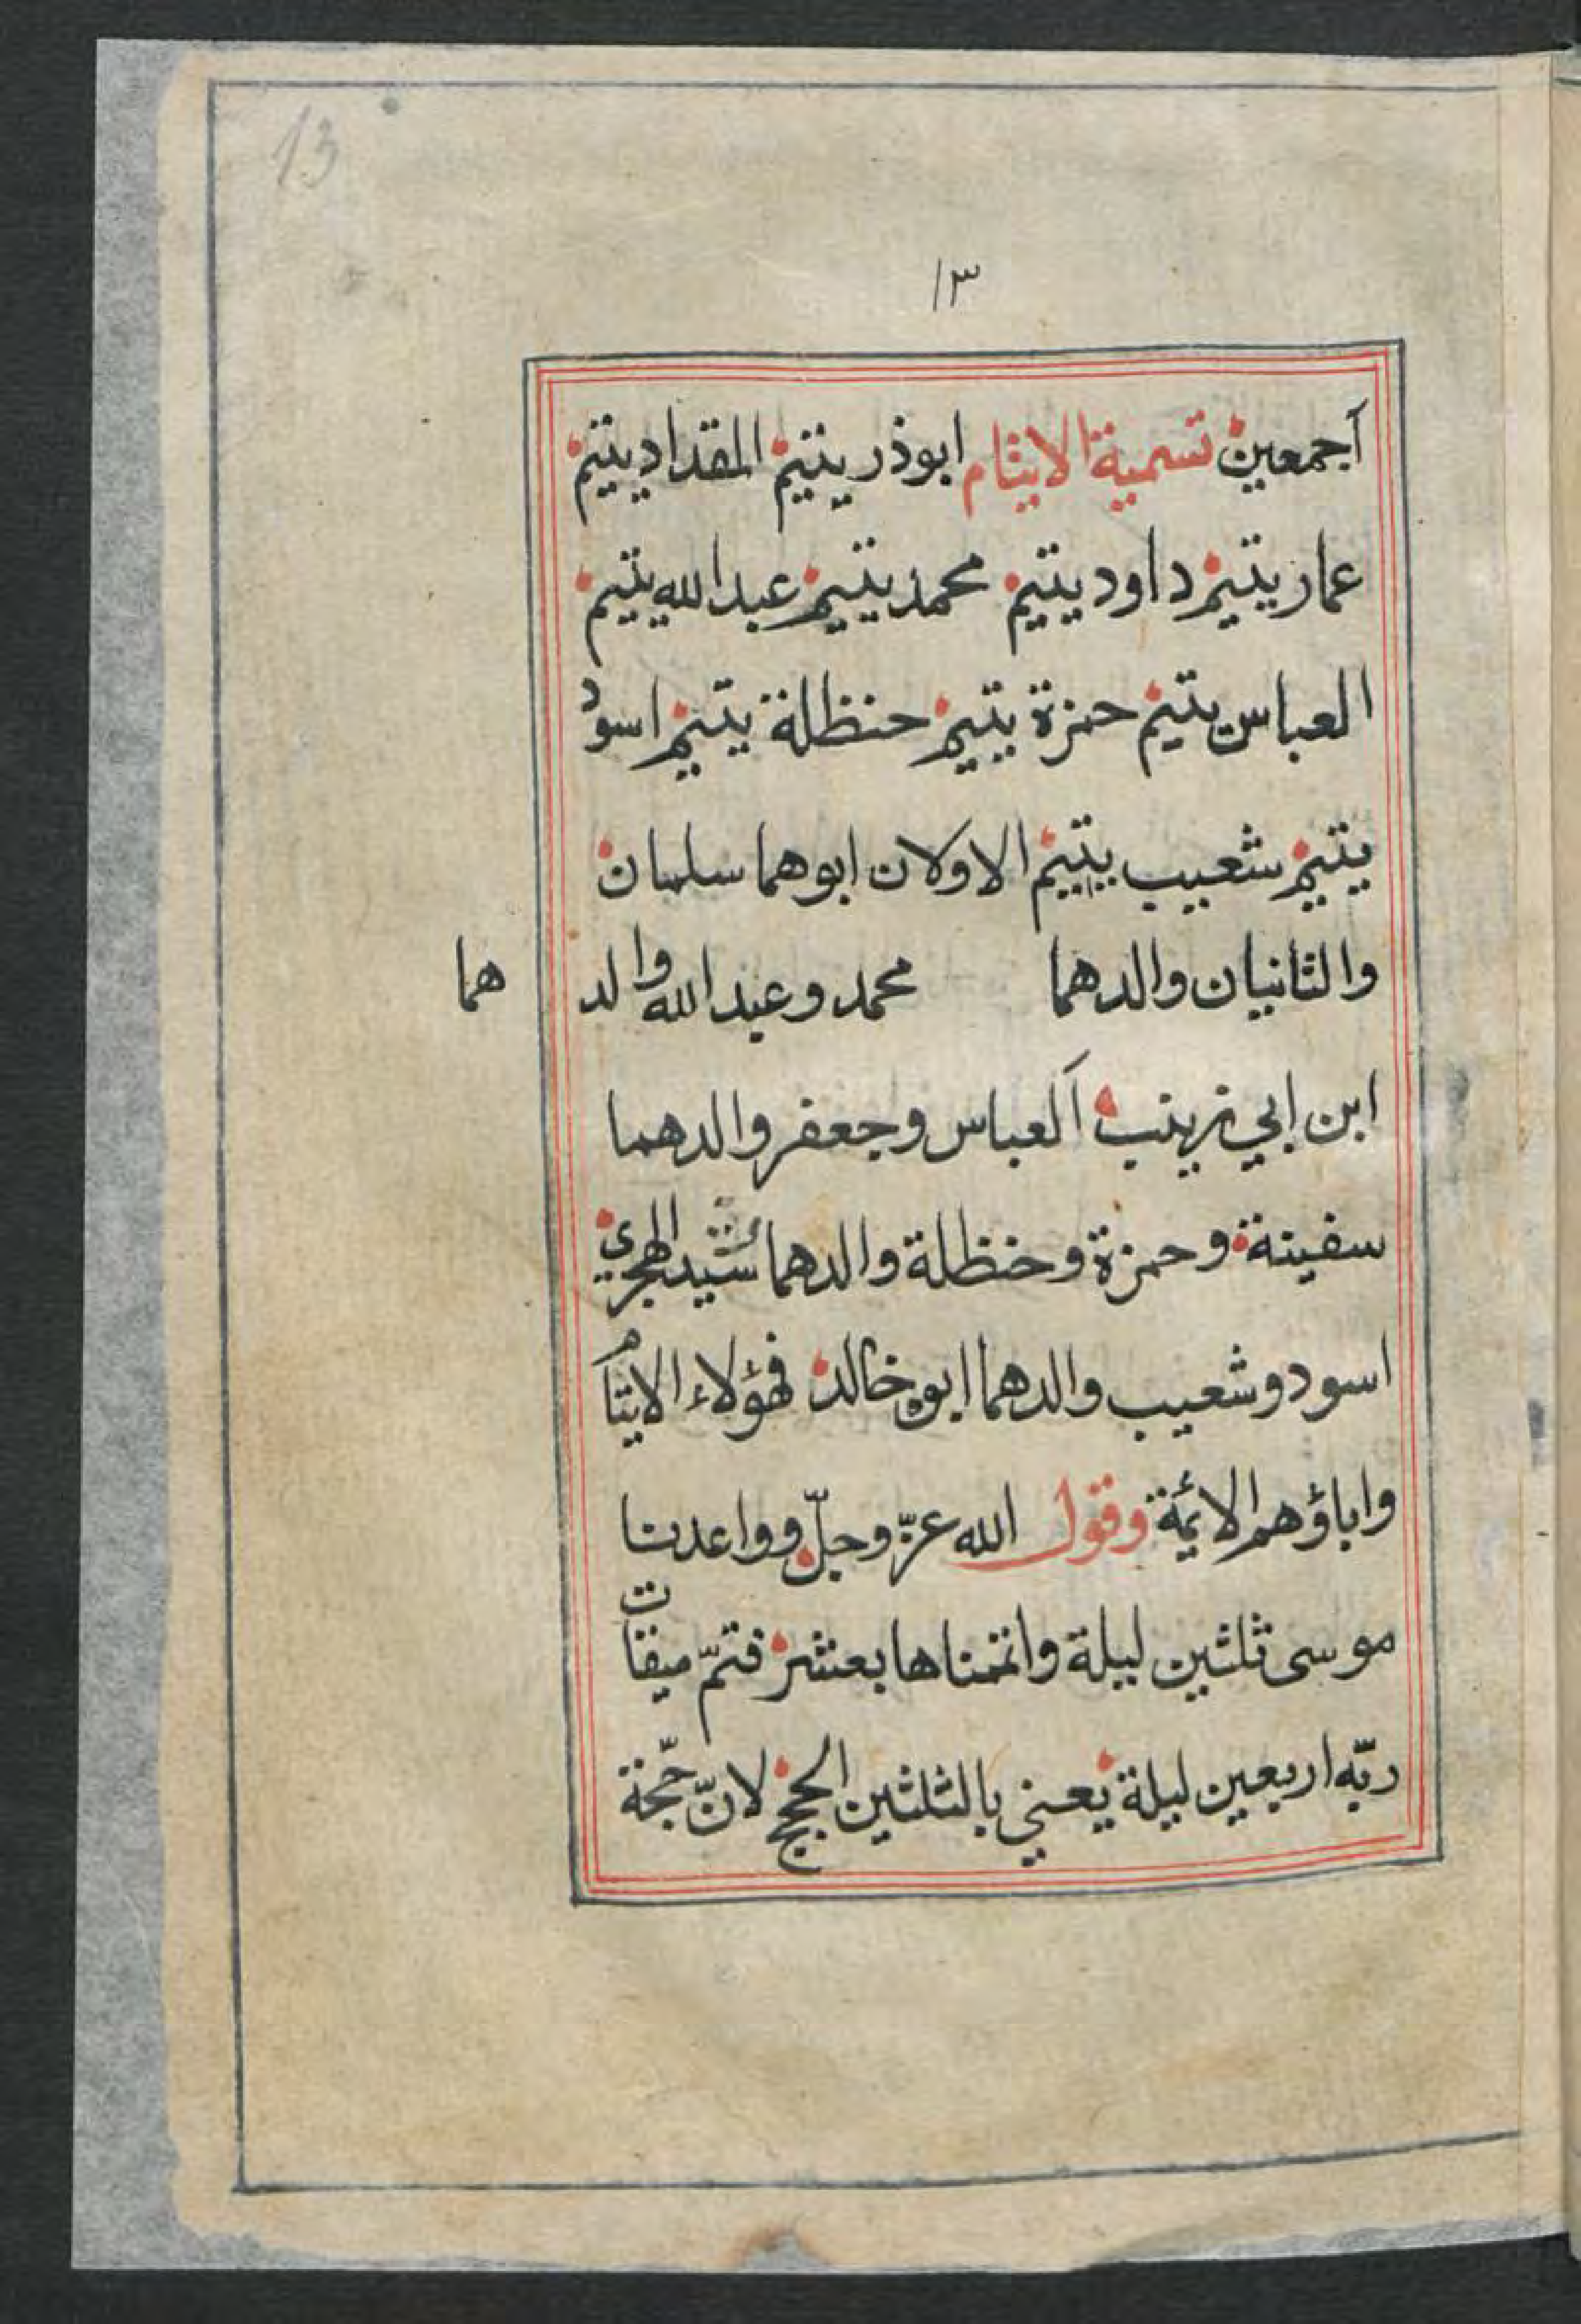 13
١٣
أجمعين تسمية الايتام ابوذر يتيم المقداد يتيم
عمار يتيم داود يتيم محمد يتيم عبد الله يتيم
العباس يتيم حمزة يتيم حنظلة يتيم اسود
يتيم شعيب يتيم الاولان ابوهما سلمان
والثانيان والدهما محمد وعبد الله والد هما
ابن ابي زينب العباس وجعفر والدهما
سفينة وحمزة وحنظلة والدهما رشيد الهجري
اسود وشعيب والدهما ابو خالد فهؤلاء الايتام
واباؤهم الائمة وقول الله عزّ وجلّ وواعدنا
موسى ثلثين ليلة واتممناها بعشر فتمّ ميقات
ربّه اربعين ليلة يعني بالثلثين الحجج لانّ حجّة